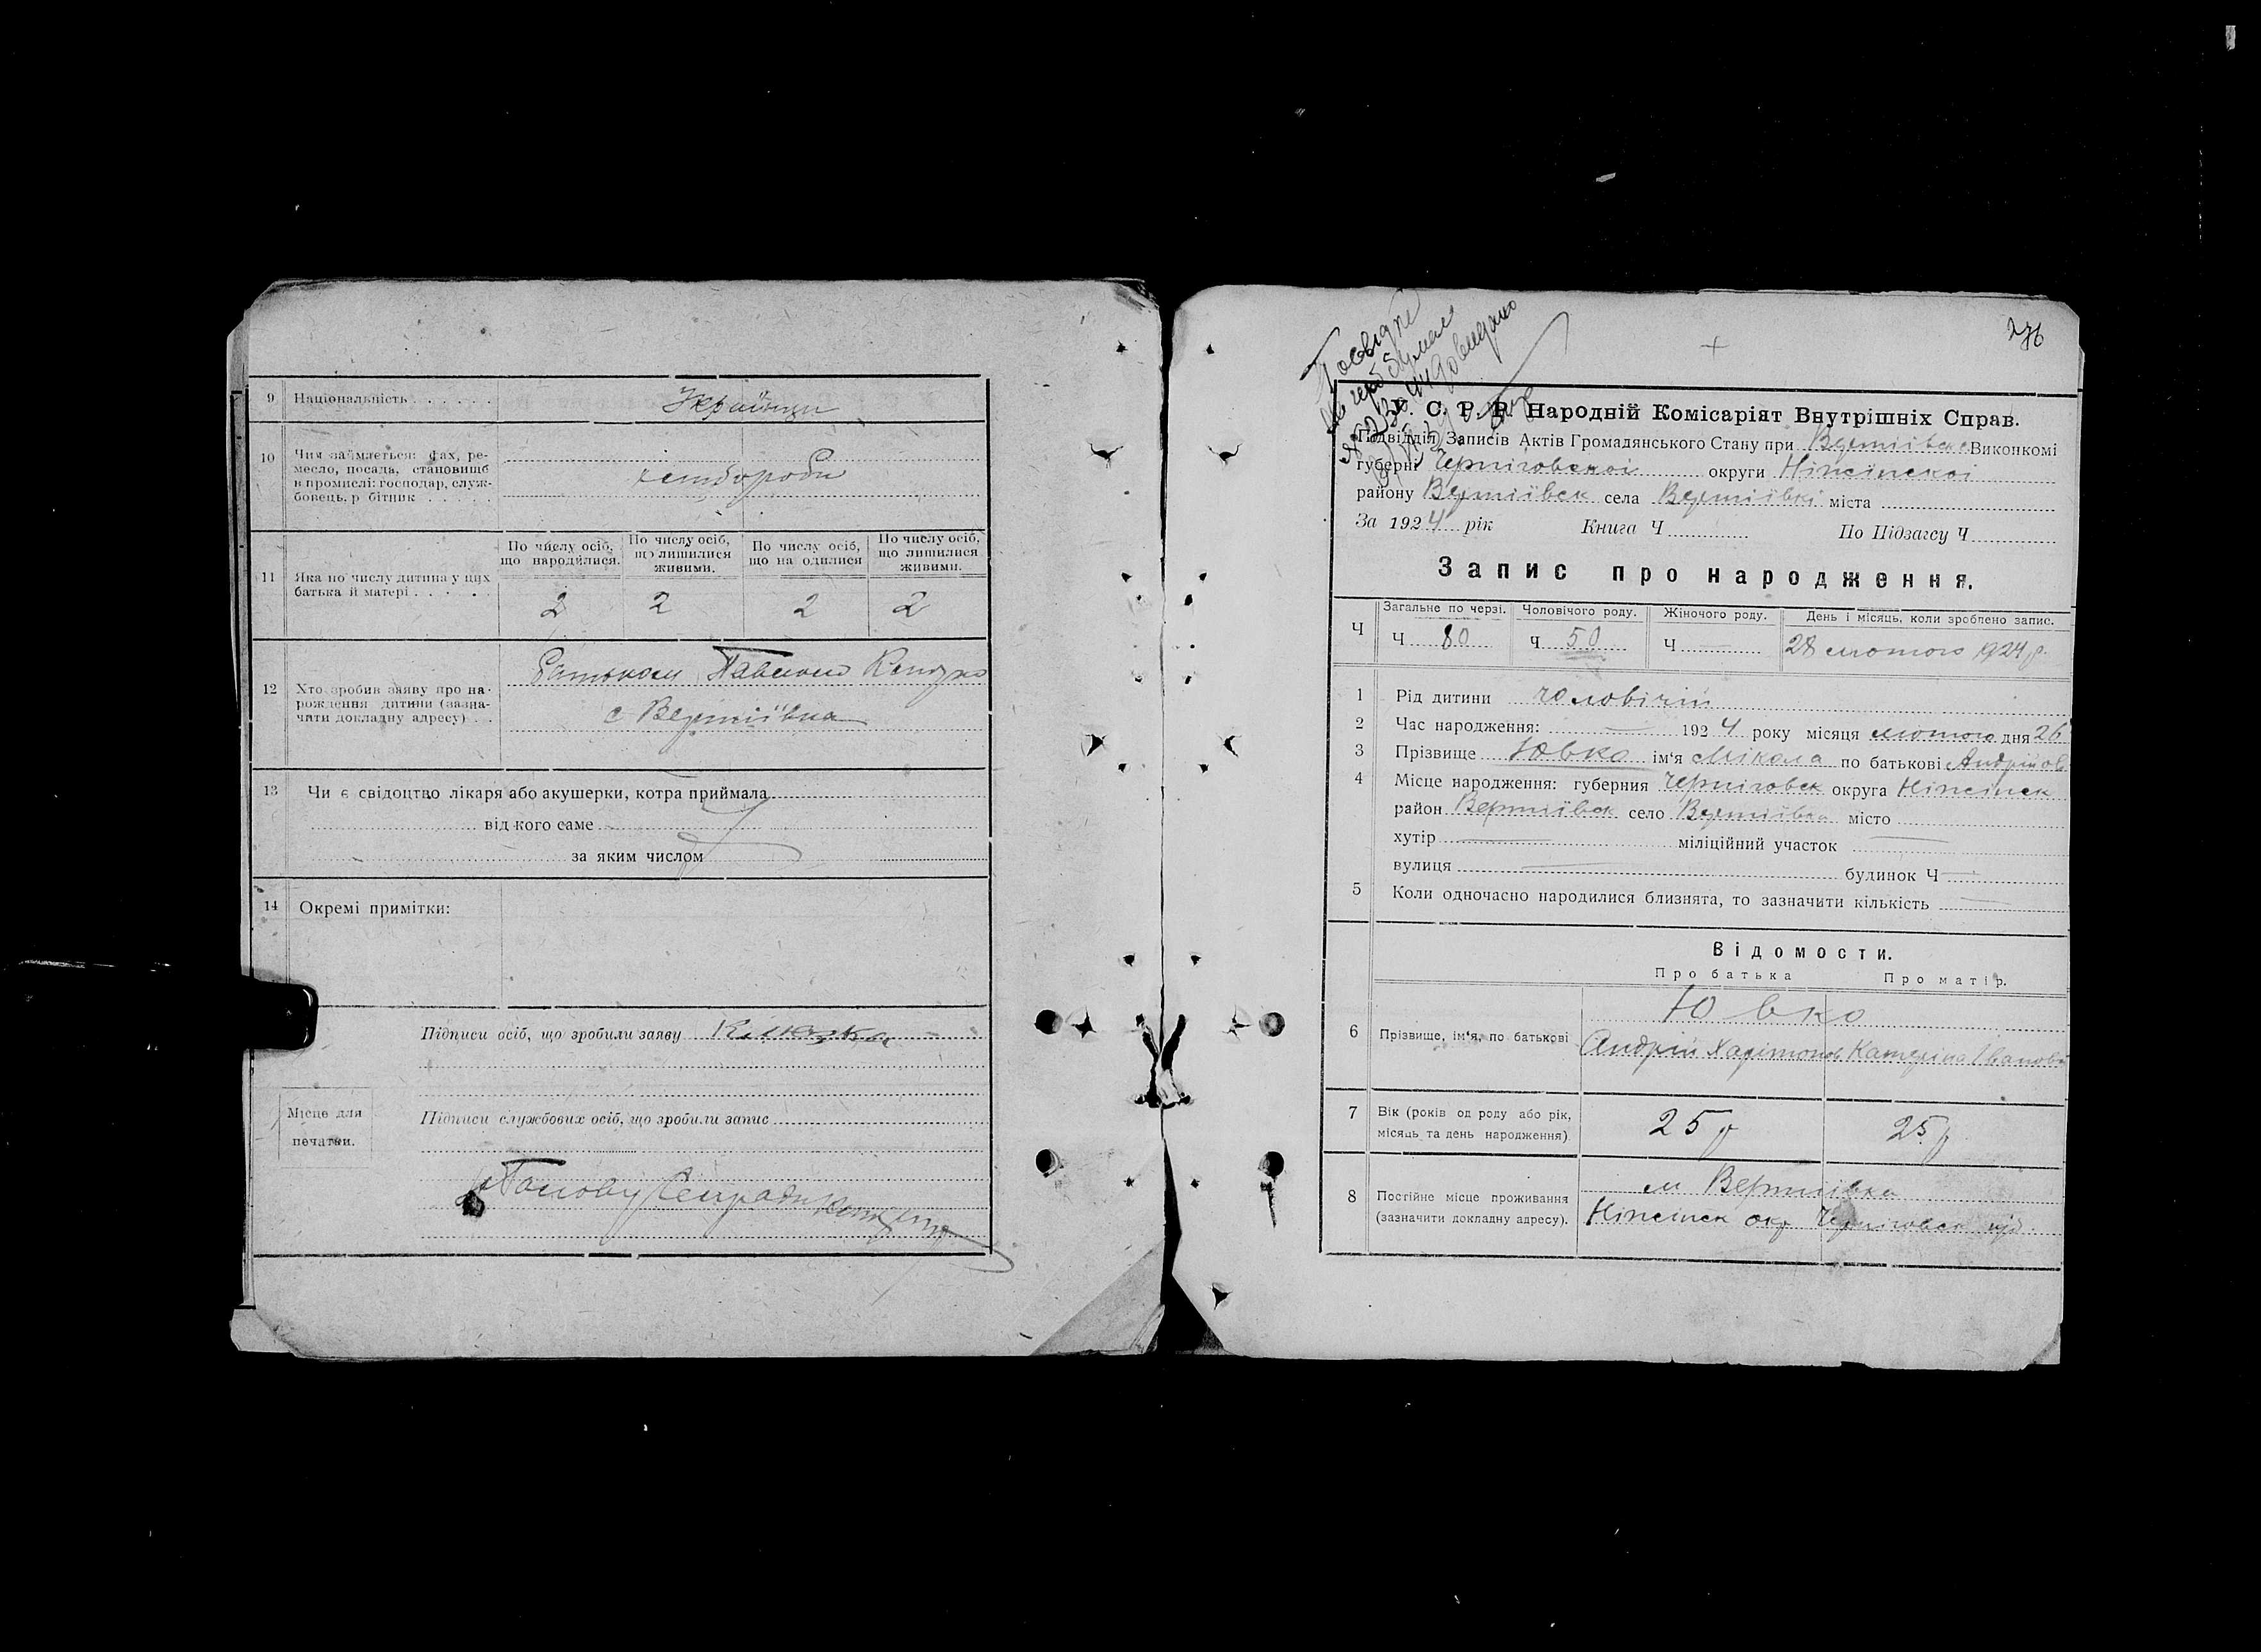 9 Національність . . . . . Українци
10 Чим займається: фах, ре-
месло, посада, становище
в промислі: господар, служ-
бовець, р бітник . . . . . хлібороби
11 Яка по числу дитина у цих
батька й матері . . . . .
По числу осіб, що народилися. По числу осіб, що лишилися живими. По числу осіб, що на одилися По числу осіб, що лишилися живими.
2 2 2 2
12 Хто зробив заяву про на-
рождення дитини (зазна-
чити докладну адресу) . .
Батьком Павлом
с Вертіївка
13 Чи є свідоцтво лікаря або акушерки, котра приймала
від кого саме
за яким числом
14 Окремі примітки:
Підписи осіб, що зробили заяву
Місце для
печатки.
Підписи службових осіб, що зробили запис
276
С. Р. Р. Народній Комісаріят Внутрішніх Справ.
Підвідділ Записів Актів Громадянського Стану при Вертіївськ Виконкомі
губерні Черніговської округи Ніжінської
району Вертіївск села Вертіївкі міста
За 1924 рік Книга Ч По Підзагсу Ч
Запис про народження.
Ч Загальне по черзі. Чоловічого роду. Жіночого роду. День і місяць, коли зроблено запис.
Ч 80 Ч 50 Ч — 28 лютого 1924 р.
1 Рід дитини чоловічій
2 Час народження: — 1924 року місяця лютого дня 26
3 Прізвище Ювко ім'я Мікола по батькові Андрійов
4 Місце народження: губерния Черніговск округа Ніжінск
район Вертіївск село Вертіївка місто
хутір — міліційний участок —
вулиця — будинок Ч —
5 Коли одночасно народилися близнята, то зазначити кількість —
Відомости.
Про батька Про матір.
Ювко
6 Прізвище, ім'я, по батькові Андрій Харітонов Катеріна Іванов
7 Вік (років од роду або рік,
місяць та день народження) 25 р 25 р
8 Постійне місце проживання
(зазначити докладну адресу).
м Вертіївка
Ніжінск окр Черніговск губ.